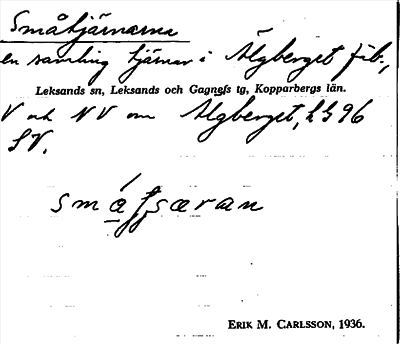 Småtjärnarna
en samling tjärnar i Älgberget fäb.,
Leksands sn, Leksands och Gagnefs tg, Kopparbergs län.
V och NV om Älgberget, LG 96
SV.
småʃʃæran
ERIK M. CARLSSON, 1936.